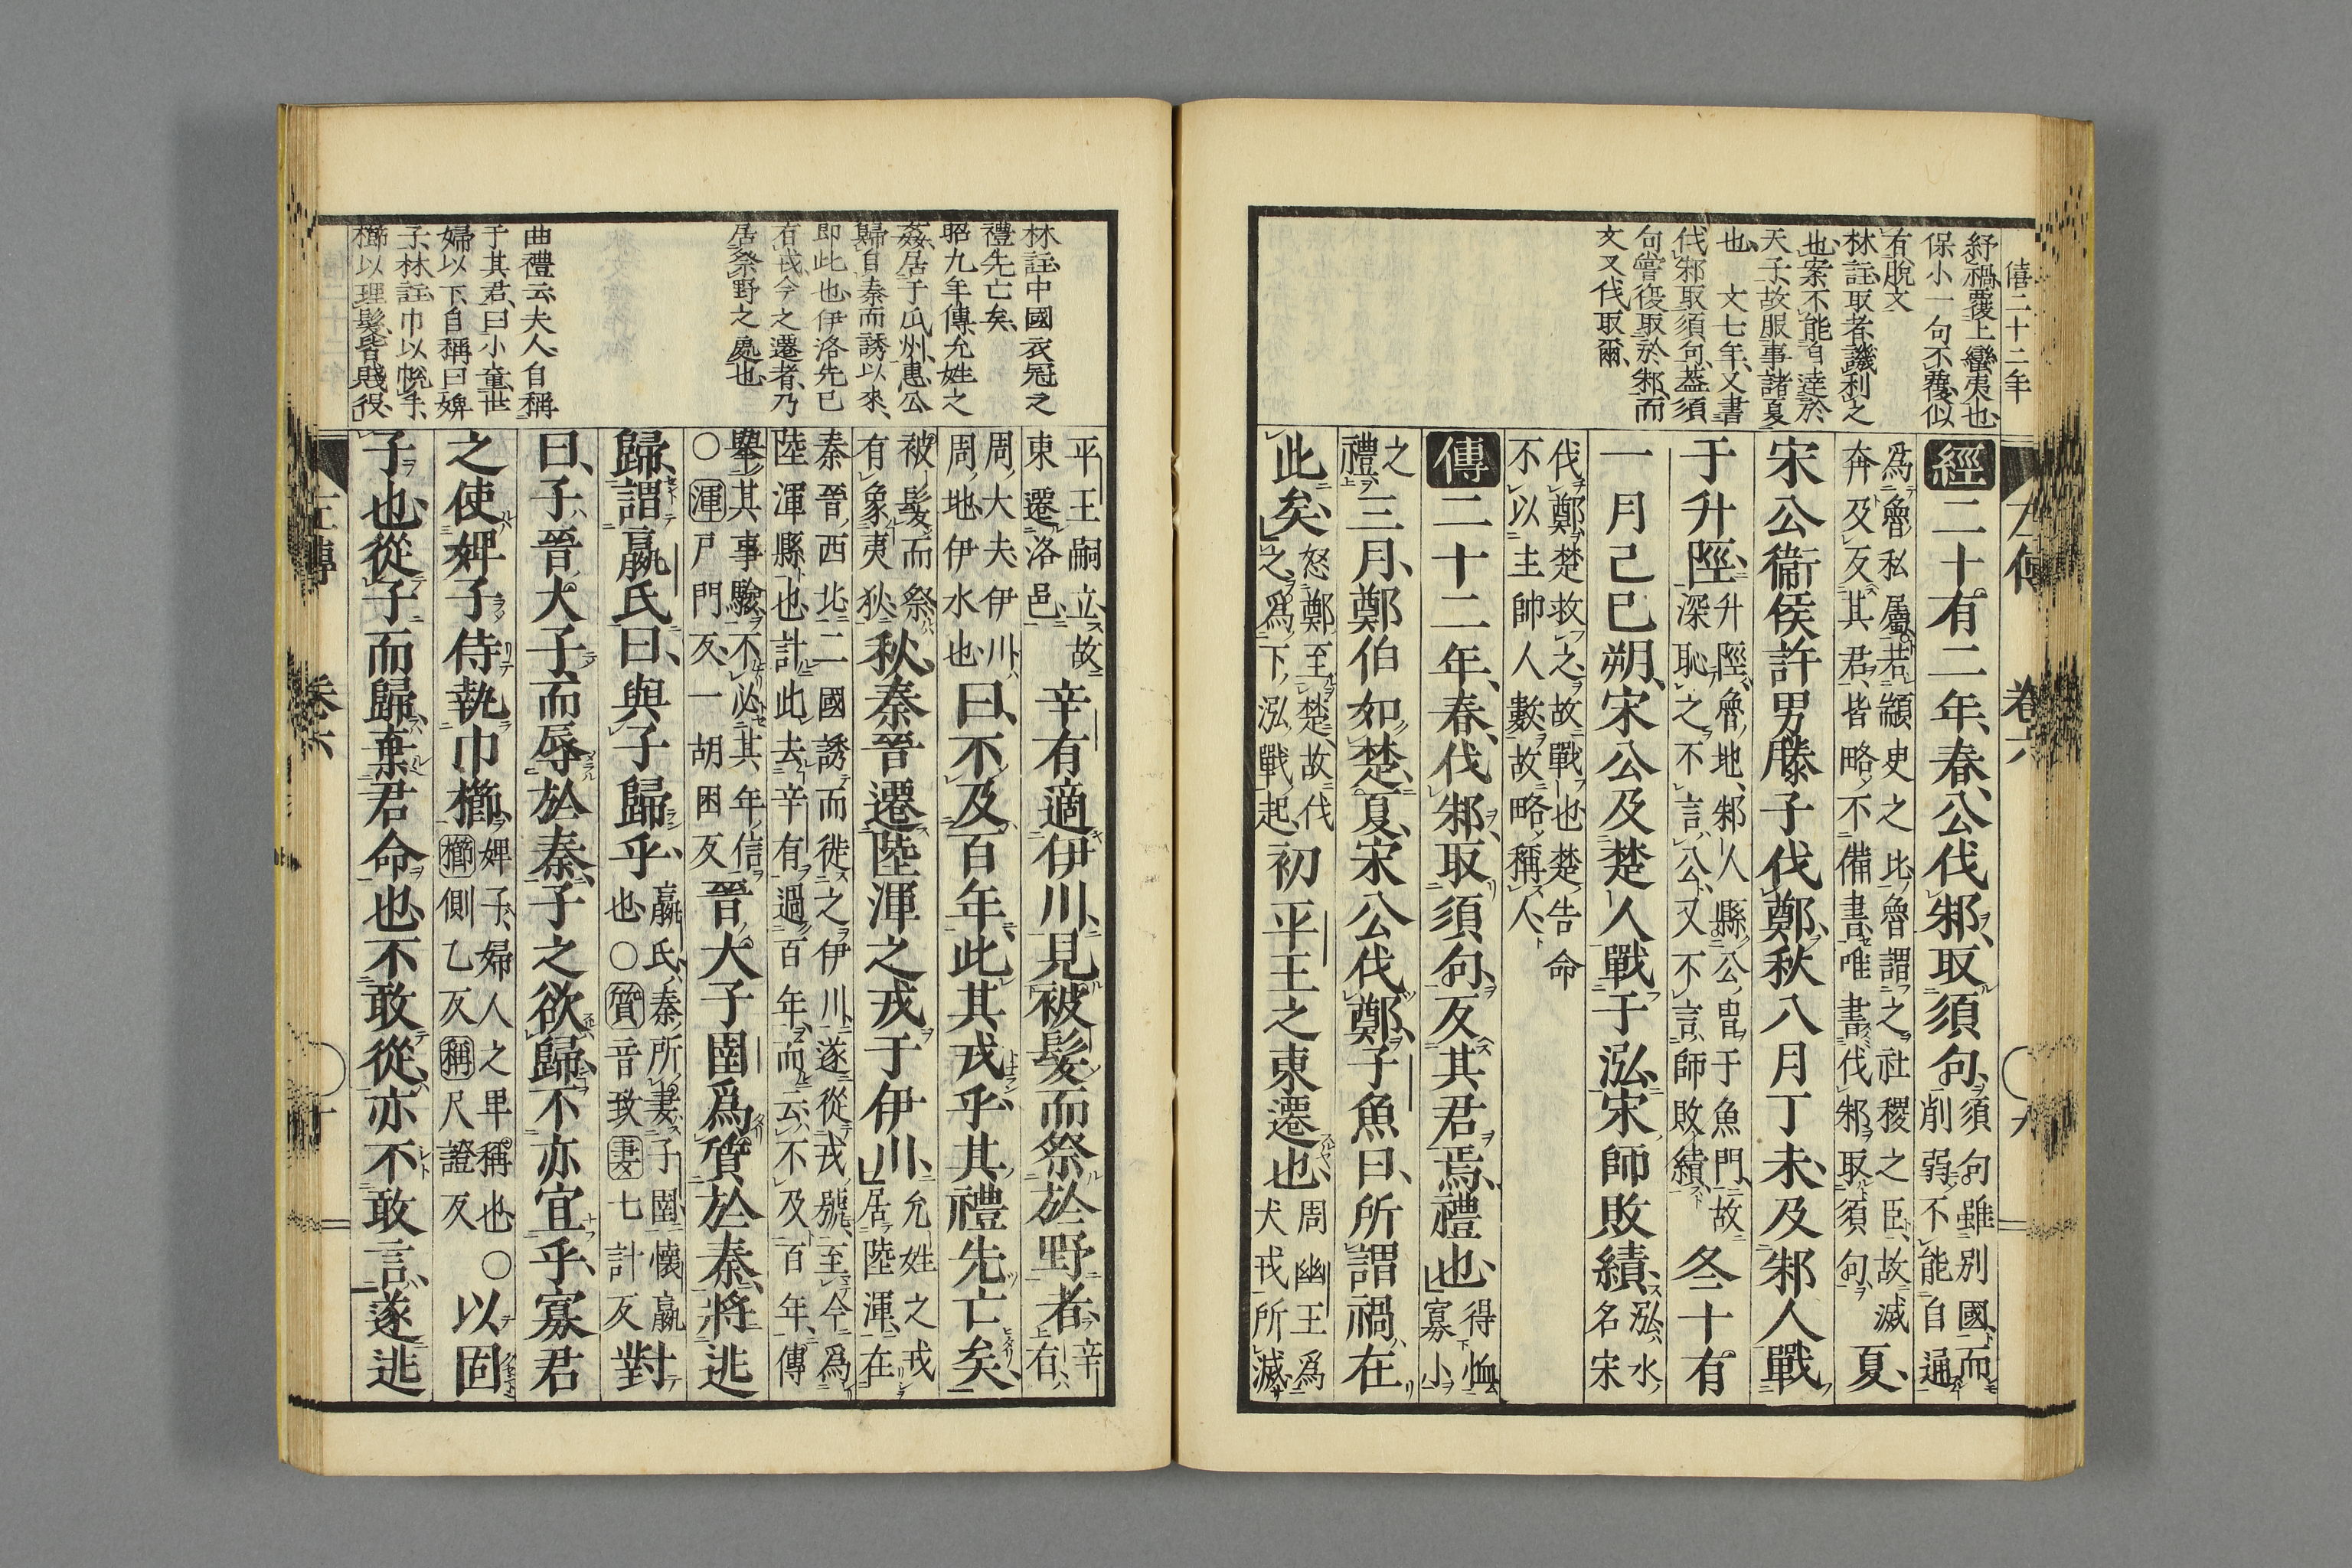 僖二十二年
紓禍覆上蠻夷也
保小一句不覆似
有脫文
林註取者譏利之
也案不能自達於
天子故服事諸夏
也　文七年又書
伐邾取須句蓋須
句嘗復取於邾而
文又伐取爾
經二十有二年春公伐邾取須句須句雖別國而削弱不能自通
為魯私屬若顓臾之比魯謂之社稷之臣故滅奔及反其君皆略不備書唯書伐邾取須句夏
宋公衞侯許男滕子伐鄭秋八月丁未及邾人戰
于升陘升陘魯地邾人縣公冑于魚門故深恥之不言公又不言師敗績冬十有
一月己巳朔宋公及楚人戰于泓宋師敗績泓水名宋
伐鄭楚救之故戰也楚告命不以主帥人數故略稱人
傳二十二年春伐邾取須句反其君焉禮也得恤寡小
之禮三月鄭伯如楚夏宋公伐鄭子魚曰所謂禍在
此矣怒鄭至楚故伐之為下泓戰起初平王之東遷也周幽王為犬戎所滅
林註中國衣冠之
禮先亡矣
昭九年傳允姓之
姦居于瓜州惠公
歸自秦而誘以來
即此也伊洛先已
有戎今之遷者乃
居祭野之處也
曲禮云夫人自稱
于其君曰小童世
婦以下自稱曰婢
子林註巾以帨手
櫛以理髮皆賤役
平王嗣立故東遷洛邑辛有適伊川見被髮而祭於野者辛有
周大夫伊川周地伊水也曰不及百年此其戎乎其禮先亡矣
被髮而祭有象夷狄秋秦晉遷陸渾之戎于伊川允姓之戎居陸渾在
秦晉西北二國誘而徙之伊川遂從戎號至今為陸渾縣也計此去辛有過百年而云不及百年傳
舉其事驗不必其年信○渾戸門反一胡困反晉大子圉為質於秦將逃
歸謂嬴氏曰與子歸乎嬴氏秦所妻子圉懷嬴也○質音致妻七計反對
曰子晉大子而辱於秦子之欲歸不亦宜乎寡君
之使婢子侍執巾櫛婢子婦人之卑稱也○櫛側乙反稱尺證反以固
子也從子而歸棄君命也不敢從亦不敢言遂逃
左傳　卷六　十